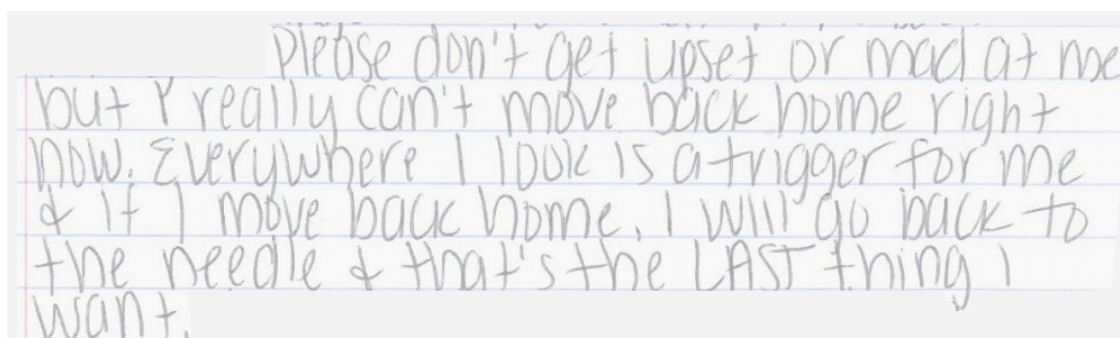 Please don't get upset or mad at me
but I really can't move back home right
now. Everywhere I look is a trigger for me
& if I move back home, I will go back to
the needle & that's the LAST thing I
want.